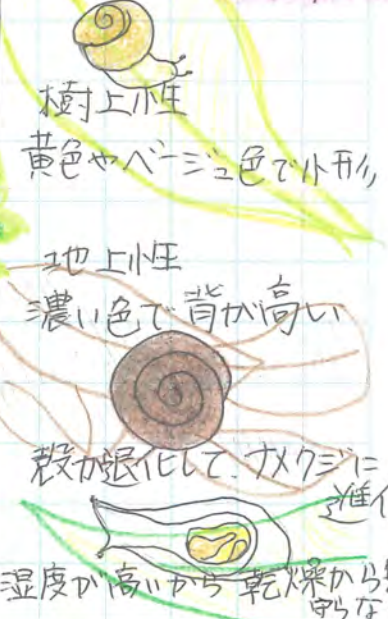 樹上性
黄色やベージュ色で小形
地上性
濃い色で背が高い
殻が退化して、ナメクジに
進化
湿度が高いから乾燥から
守らな